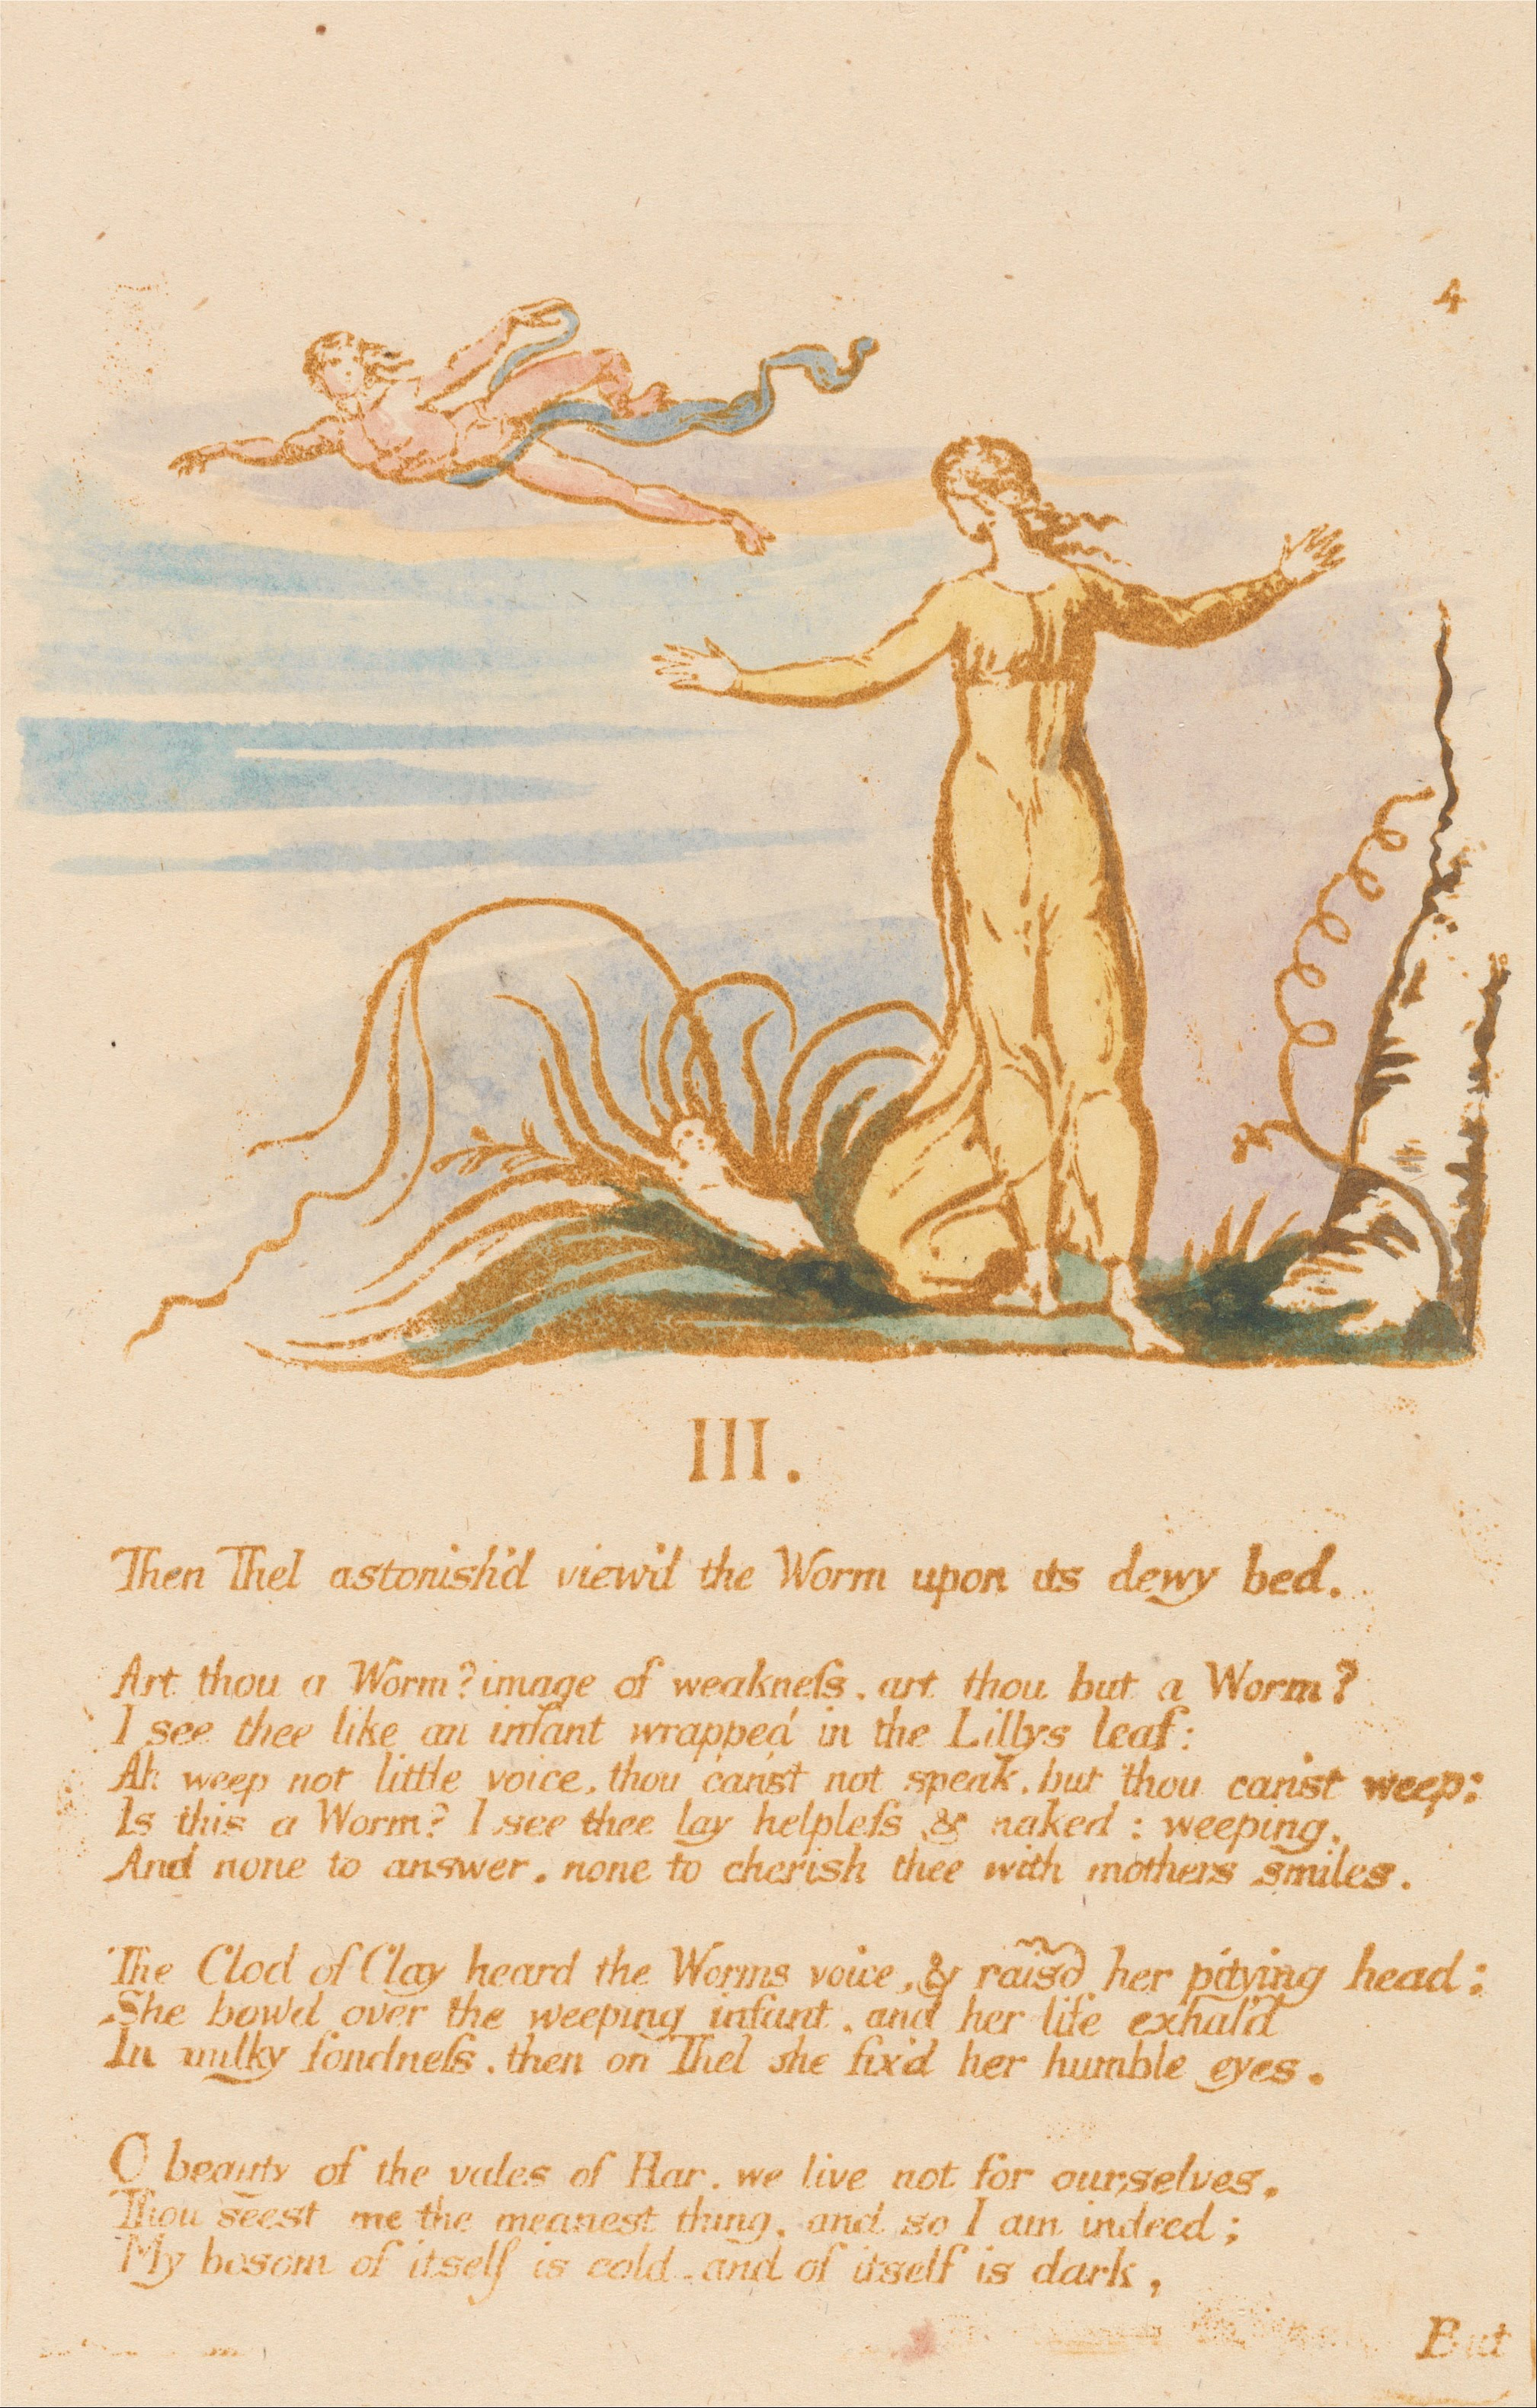 4
III.
Then Thel astonish'd view'd the Worm upon its dewy bed.
Art thou a Worm? image of weakneſs. art thou but a Worm?
I see thee like an infant wrapped in the Lillys leaf:
Ah weep not little voice, thou can'st not speak. but thou can'st weep:
Is this a Worm? I see thee lay helpleſs & naked: weeping,
And none to answer, none to cherish thee with mothers smiles.
The Clod of Clay heard the Worms voice, & raisd her pitying head:
She bow'd over the weeping infant, and her life exhal'd
In milky fondneſs, then on Thel she fix'd her humble eyes.
O beauty of the vales of Har. we live not for ourselves,
Thou seest me the meanest thing, and so I am indeed;
My bosom of itself is cold. and of itself is dark,
But